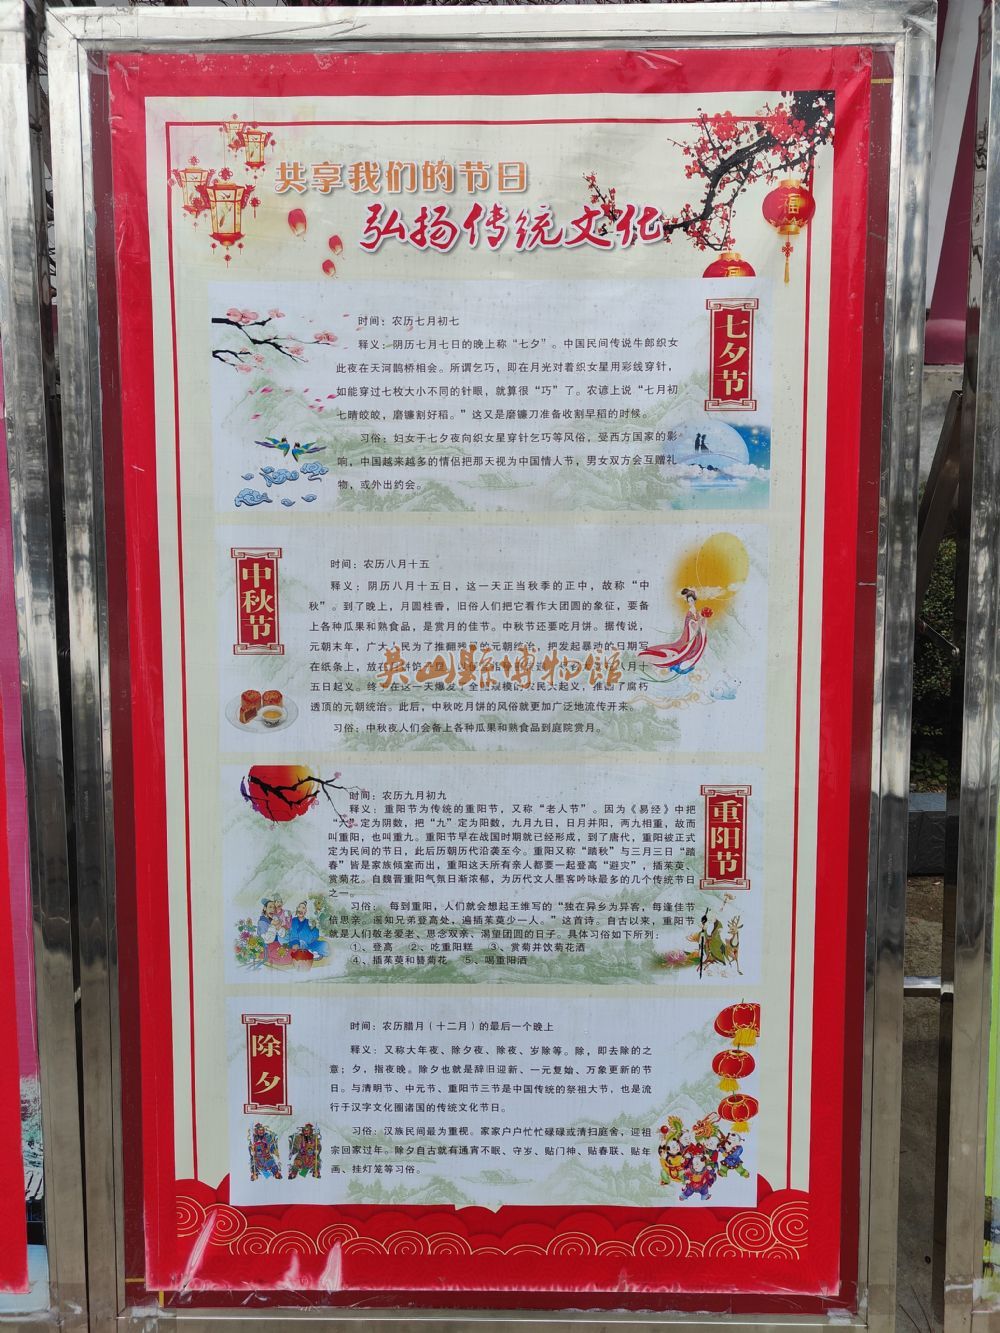 共享我们的节日
弘扬传统文化
福
福
七夕节
时间：农历七月初七
释义：阴历七月七日的晚上称“七夕”。中国民间传说牛郎织女
此夜在天河鹊桥相会。所谓乞巧，即在月光对着织女星用彩线穿针，
如能穿过七枚大小不同的针眼，就算很“巧”了。农谚上说“七月初
七晴皎皎，磨镰割好稻。”这又是磨镰刀准备收割早稻的时候。
习俗：妇女于七夕夜向织女星穿针乞巧等风俗，受西方国家的影
响，中国越来越多的情侣把那天视为中国情人节，男女双方会互赠礼
物，或外出约会。
中秋节
时间：农历八月十五
释义：阴历八月十五日，这一天正当秋季的正中，故称“中
秋”。到了晚上，月圆桂香，旧俗人们把它看作大团圆的象征，要备
上各种瓜果和熟食品，是赏月的佳节。中秋节还要吃月饼。据传说，
元朝末年，广大人民为了推翻残暴的元朝统治，把发起暴动的日期写
在纸条上，放在月饼馅子里 八月十
五日起义。终于在这一天爆发了全国规模的农民大起义，推翻了腐朽
透顶的元朝统治。此后，中秋吃月饼的风俗就更加广泛地流传开来。
习俗：中秋夜人们会备上各种瓜果和熟食品到庭院赏月。
博物馆
重阳节
时间：农历九月初九
释义：重阳节为传统的重阳节，又称“老人节”。因为《易经》中把
“六”定为阴数，把“九”定为阳数，九月九日，日月并阳，两九相重，故而
叫重阳，也叫重九。重阳节早在战国时期就已经形成，到了唐代，重阳被正式
定为民间的节日，此后历朝历代沿袭至今。重阳又称“踏秋”与三月三日“踏
春”皆是家族倾室而出，重阳这天所有亲人都要一起登高“避灾”，插茱萸、
赏菊花。自魏晋重阳气氛日渐浓郁，为历代文人墨客吟咏最多的几个传统节日
之一。
习俗： 每到重阳，人们就会想起王维写的“独在异乡为异客，每逢佳节
倍思亲。遥知兄弟登高处，遍插茱萸少一人。”这首诗。自古以来，重阳节
就是人们敬老爱老、思念双亲、渴望团圆的日子。具体习俗如下所列：
①、登高 ②、吃重阳糕 ③、赏菊并饮菊花酒
④、插茱萸和簪菊花 ⑤、喝重阳酒
除夕
时间：农历腊月（十二月）的最后一个晚上
释义：又称大年夜、除夕夜、除夜、岁除等。除，即去除的之
意；夕，指夜晚。除夕也就是辞旧迎新、一元复始、万象更新的节
日。与清明节、中元节、重阳节三节是中国传统的祭祖大节，也是流
行于汉字文化圈诸国的传统文化节日。
习俗：汉族民间最为重视。家家户户忙忙碌碌或清扫庭舍，迎祖
宗回家过年。除夕自古就有通宵不眠、守岁、贴门神、贴春联、贴年
画、挂灯笼等习俗。